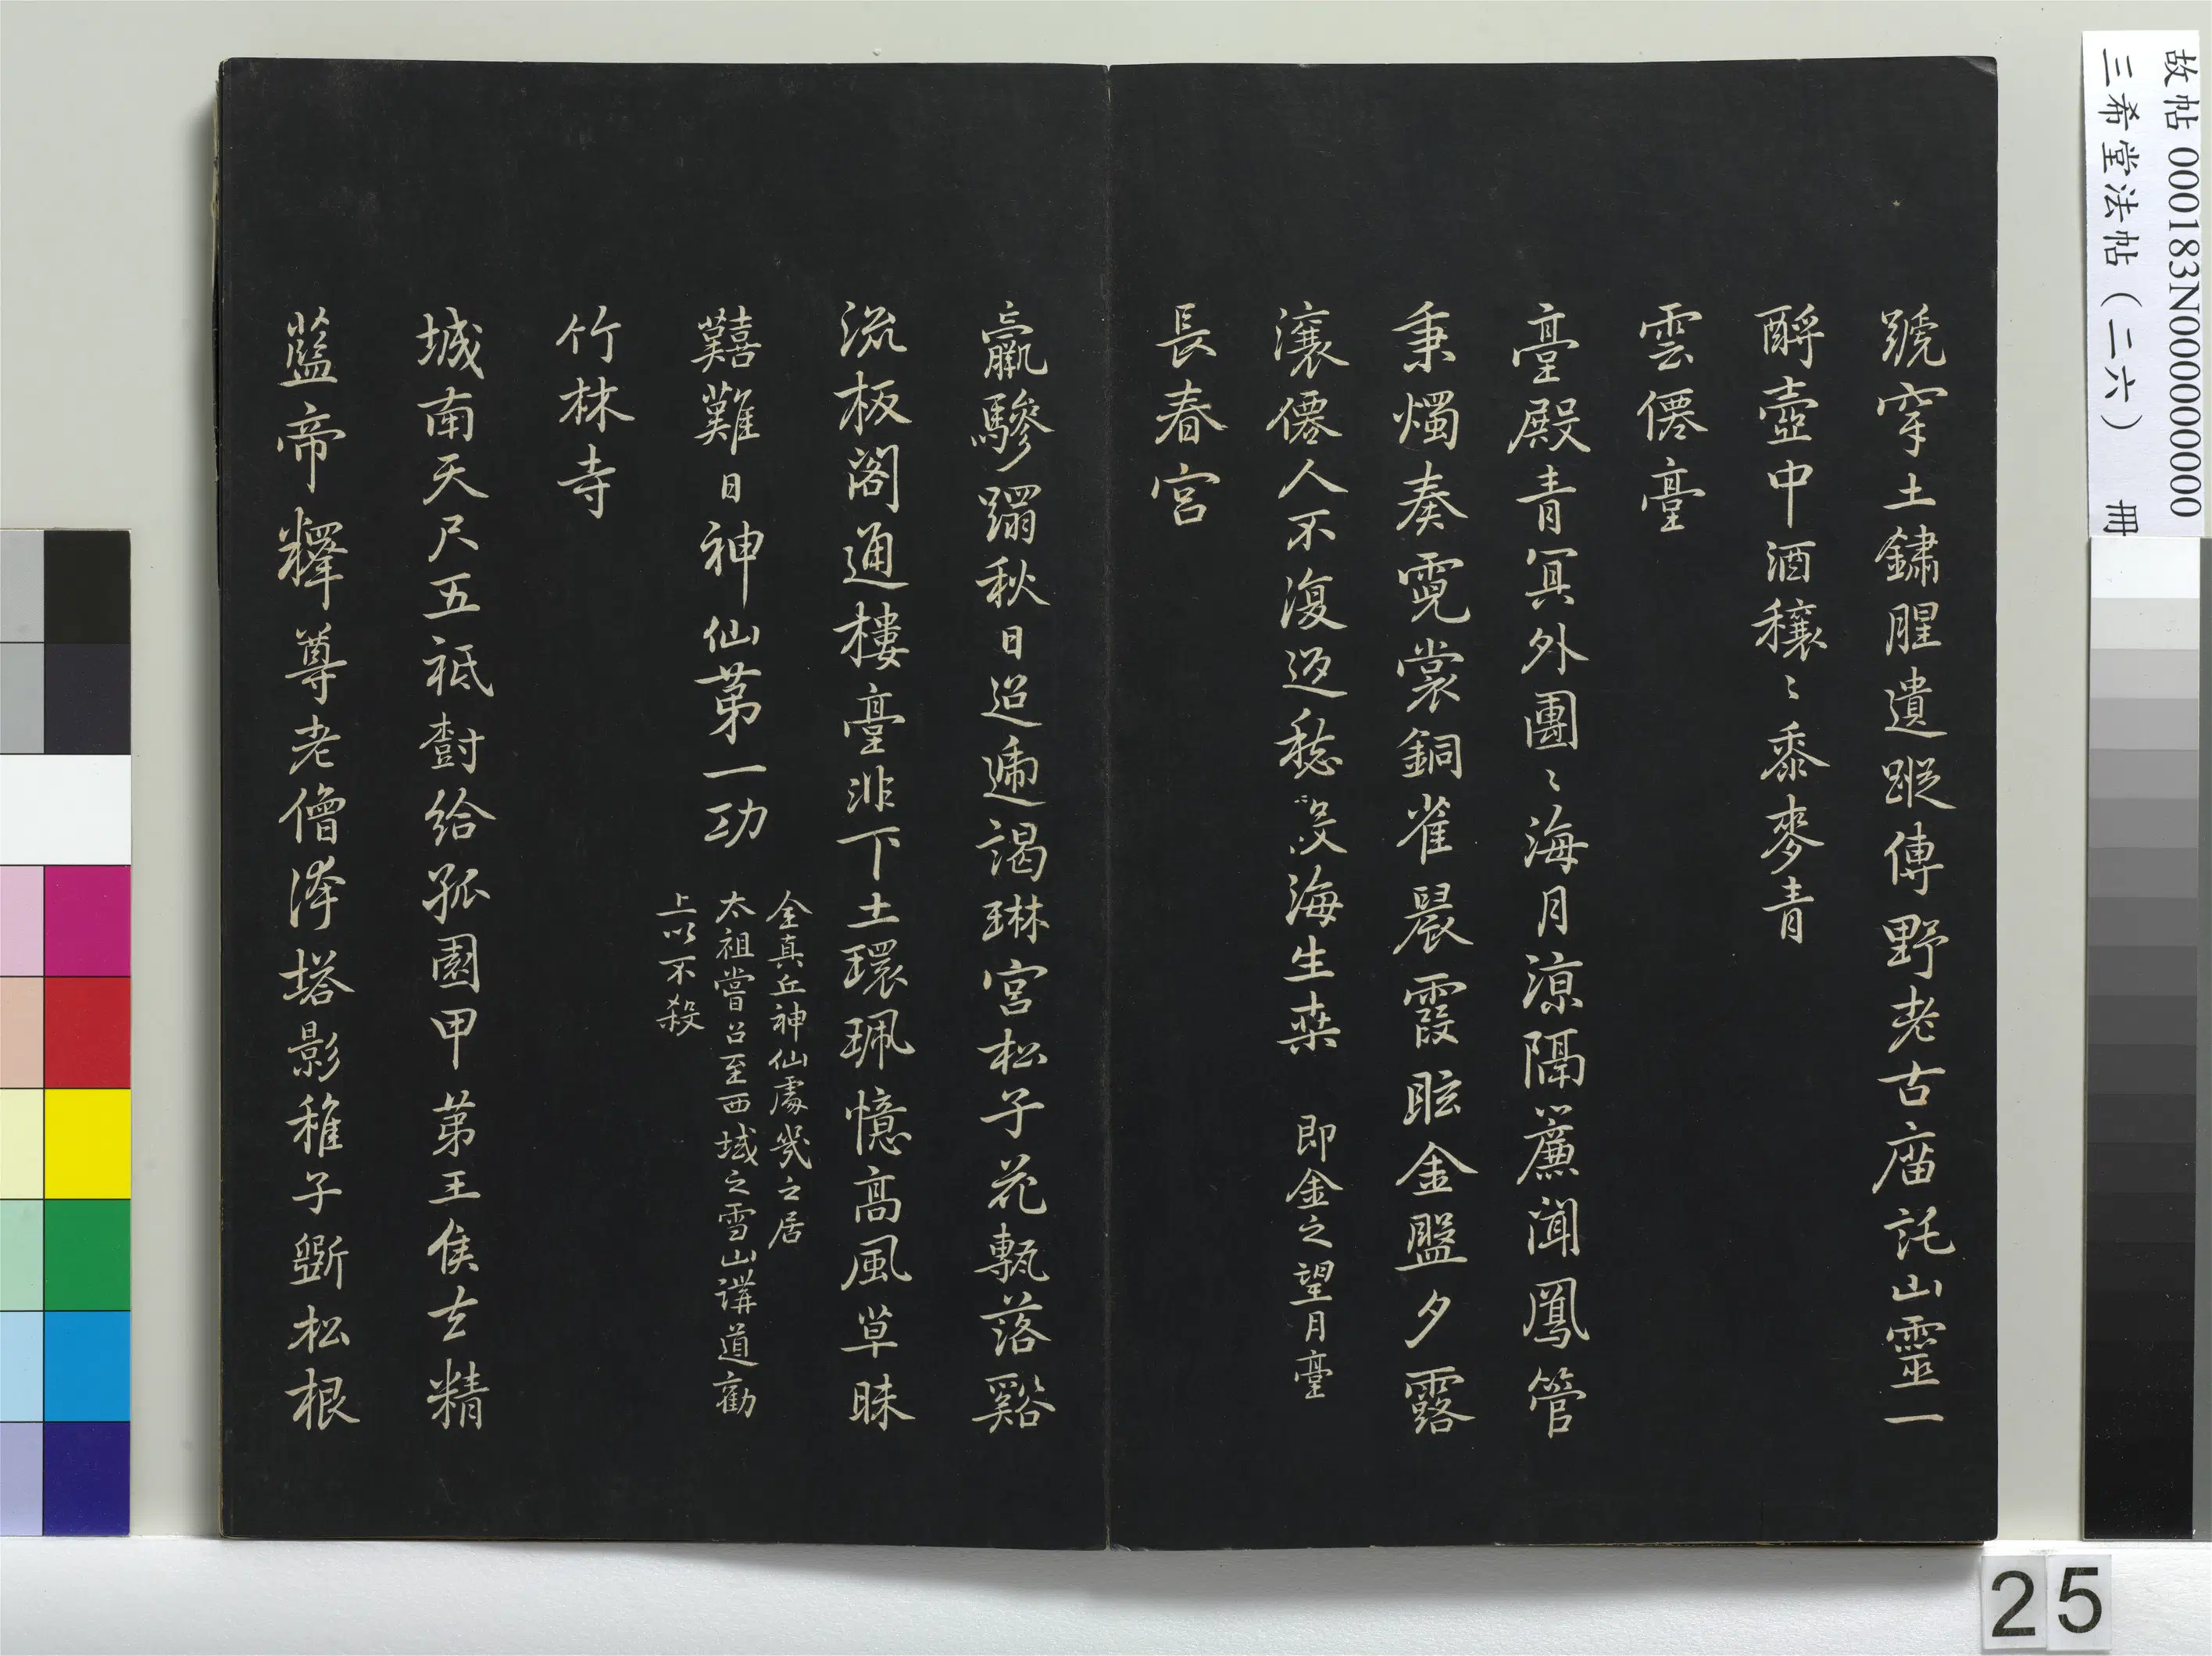 號穿土鏽腥遺蹤傳野老古庿託山靈一
酹壺中酒穰〻黍麥青
雲僊臺
臺殿青冥外團〻海月涼隔簾聞鳳管
秉燭奏霓裳銅雀晨霞眩金盤夕露
瀼僊人不復返愁沒海生桒 即金之望月臺
長春宮
羸驂躡秋日迢遞謁琳宮松子花甎落谿
流板閣通樓臺非下土環珮憶高風草昧
囏難日神仙第一功
全真丘神仙處幾之居
太祖嘗召至西域之雪山講道勸
上以不殺
竹林寺
城南天尺五祗樹給孤園甲第王侯去精
藍帝釋尊老僧浮塔影稚子斵松根
故帖 000183N000000000
三希堂法帖（二六） 冊
25